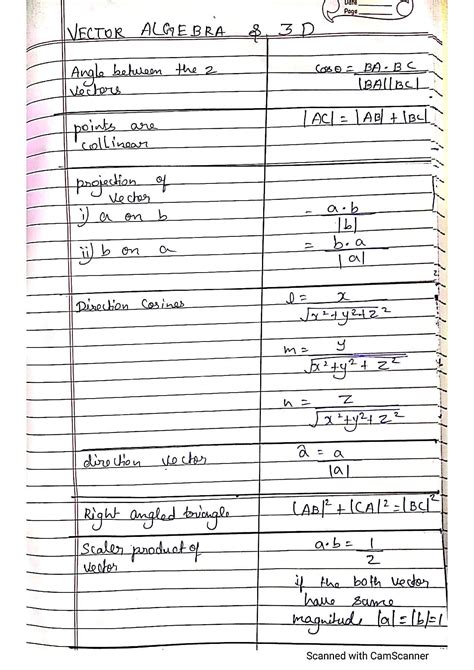 Date
Page
VECTOR ALGEBRA & 3D
Angle between the 2 vectors
cosθ = BA·BC / |BA||BC|
points are collinear
|AC| = |AB| + |BC|
projection of vector
i) a on b
= a·b / |b|
ii) b on a
= b·a / |a|
Direction Cosines
l = x / √x²+y²+z²
m = y / √x²+y²+z²
n = z / √x²+y²+z²
direction vector
â = a / |a|
Right angled triangle
|AB|² + |CA|² = |BC|²
Scaler product of vector
a·b = 1/2
if the both vector
have same
magnitude |a|=|b|=1
Scanned with CamScanner